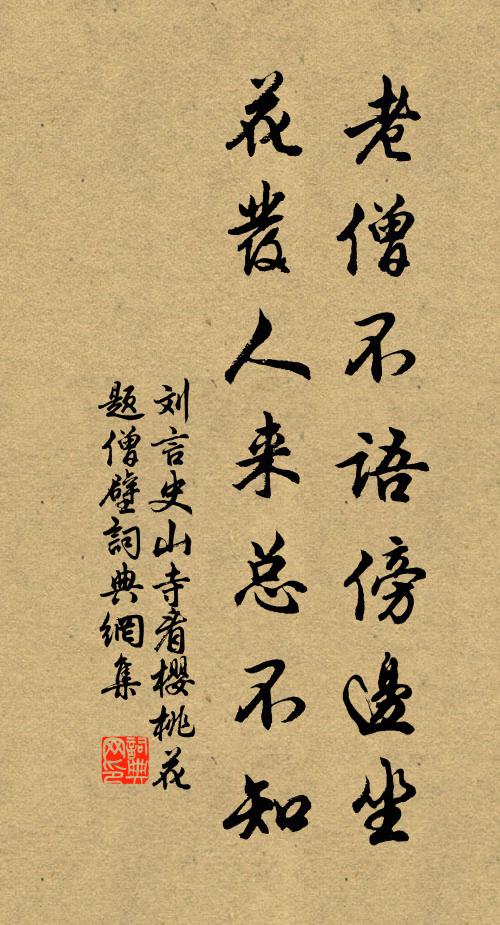 老僧不语傍边坐
花發人来总不知
刘言史山寺看櫻桃花
題僧壁詞典網集
詞典网印